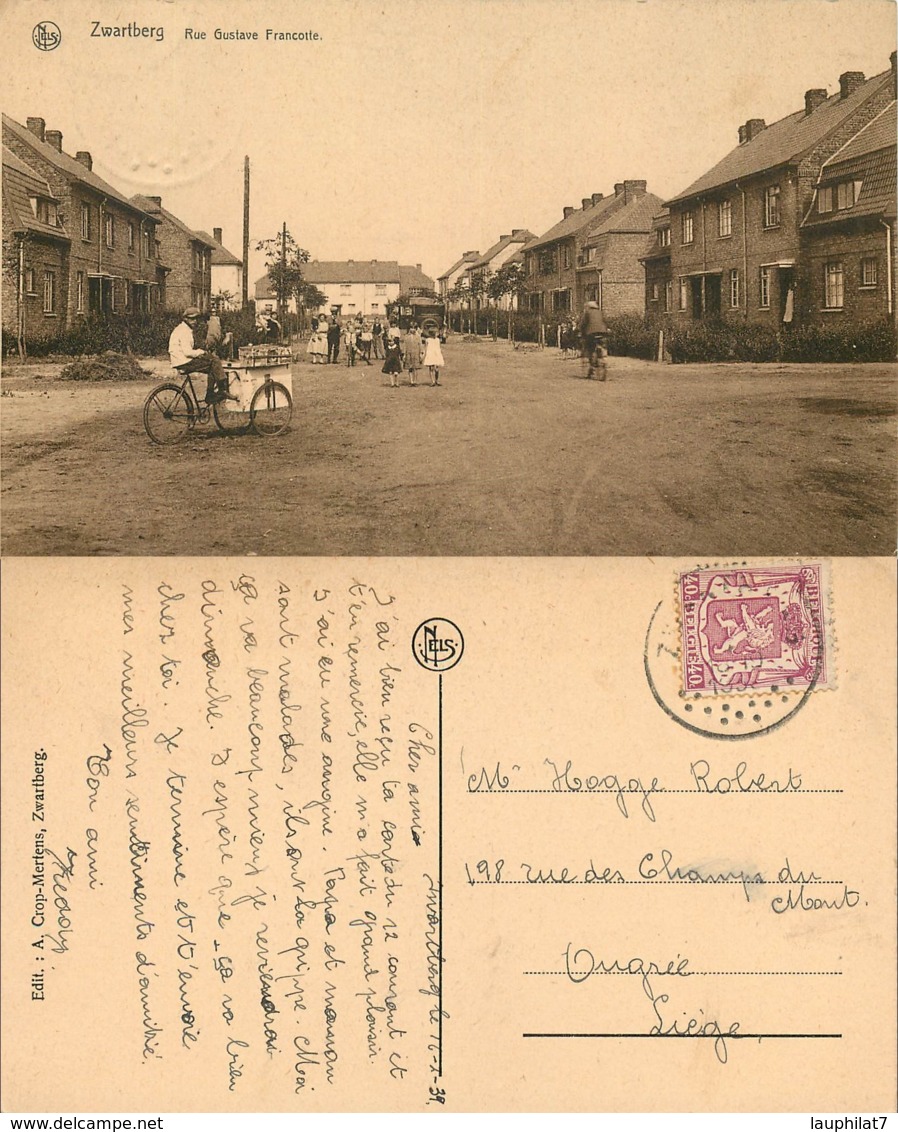 NELS
Zwartberg Rue Gustave Francotte.
Zwartberg le 16-1-39.
Cher ami
J'ai bien reçu ta carte du 12 courant et
t'en remercie, elle m'a fait grand plaisir.
J'ai eu une angine. Papa et maman
sont malades, ils ont la grippe. Moi
ça va beaucoup mieux je reviendrai
dimanche. J'espère que ça va bien
chez toi. Je termine et t'envoie
mes meilleurs sentiments d'amitié.
Ton ami
Freddy.
Edit. : A. Crop-Mertens, Zwartberg.
NELS
BELGIQUE
40c BELGIË 40c
Mr Hogge Robert
198 rue des Champs du
Mont.
Ougrée
Liège
lauphilat7